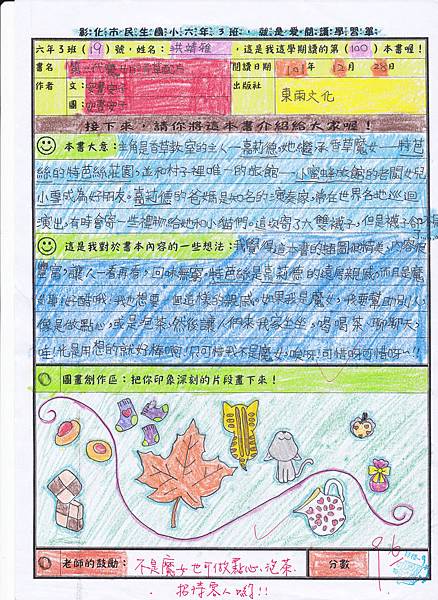 彰化市民生國小六年3班，就是愛閱讀學習單
六年3班(19)號，姓名：洪靖雅，這是我這學期讀的第(100)本書喔！
書名 閱讀日期 101年12月28日
作者 文：安晝安子 出版社 東雨文化
圖：安晝安子
接下來，請你將這本書介紹給大家喔！
本書大意：主角是香草教室的主人—嘉莉德，她繼承香草魔女—特芭
絲的特芭絲莊園，並和村子裡唯一的旅館—小蜜蜂旅館的老闆女兒
小雪成為好朋友。嘉莉德的爸媽是知名的演奏家，常在世界各地巡迴
演出，有時會寄一些禮物給她和小貓們。這次寄了大雙襪子，但是襪子
這是我對於書本內容的一些想法：我覺得這本書的插圖很精美，內容很
豐富，讓人一看再看，回味無窮。特芭絲是嘉莉德的遠房親戚，而且是魔
女耶！好酷哦！我也想要一個這樣的親戚。如果我是魔女，我要幫助別人，
像是做點心，或是泡茶，然後讓人們來我家坐坐，喝喝茶、聊聊天，
哇！光是用想的就好棒啊！只可惜我不是魔女，唉呀！可惜呀可惜呀~!!
圖畫創作區：把你印象深刻的片段畫下來！
老師的鼓勵： 不是魔女也可做點心、泡茶、 分數 96
招待客人喲!!